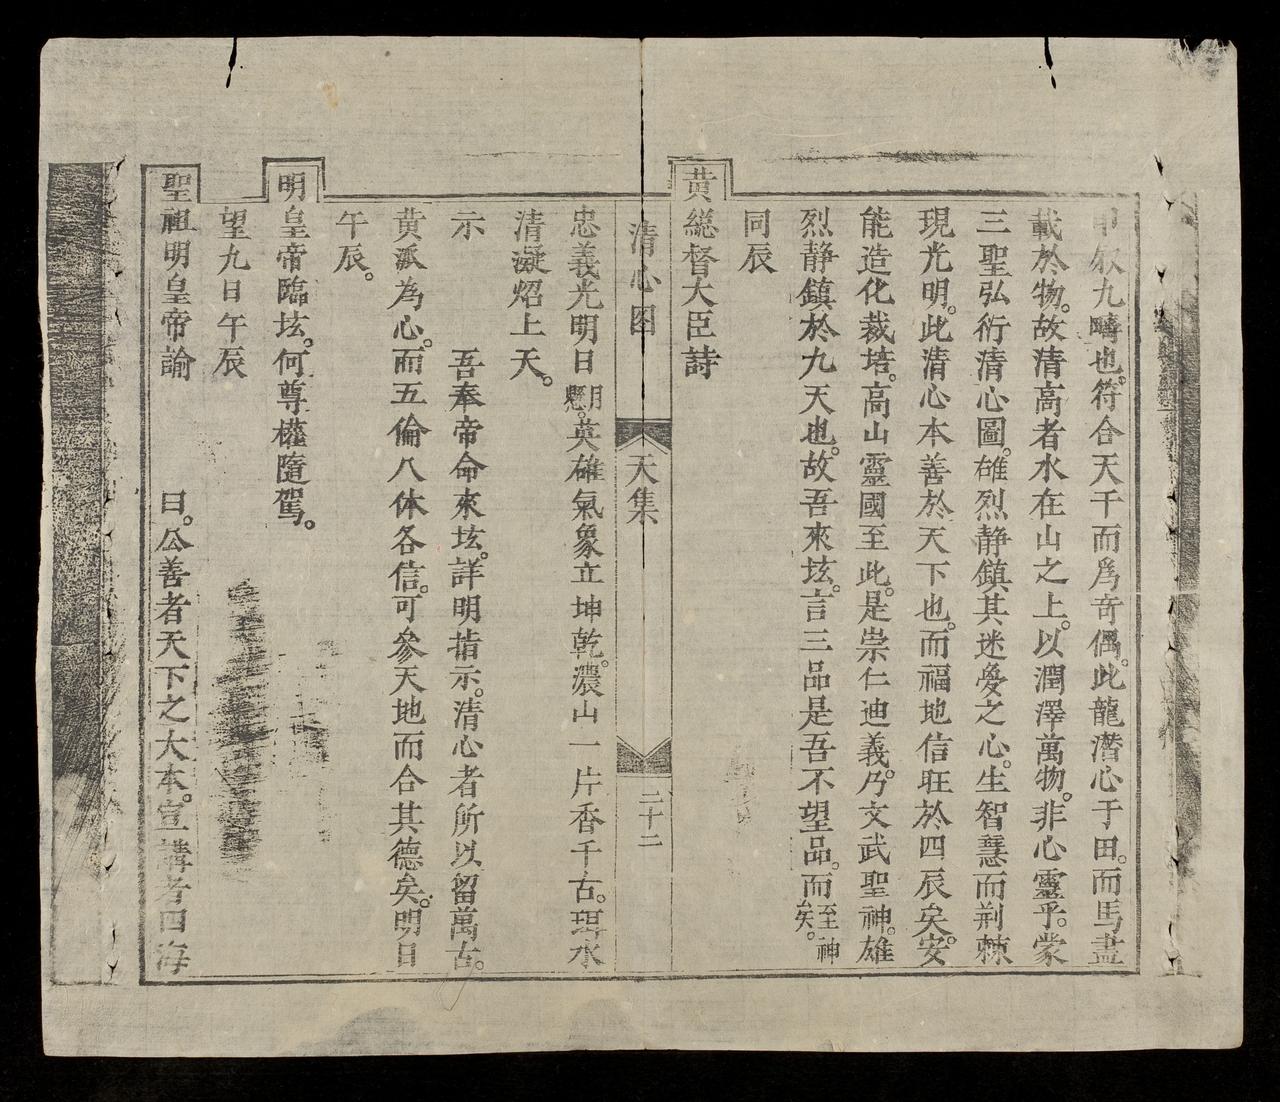 九疇也。符合天干而爲奇偶。此龍潛心于田。而馬畫
載於物。故清高者水在山之上。以潤澤萬物。非心靈乎。蒙
三聖弘衍清心圖。雄烈静鎮其迷愛之心。生智慧而荆棘
現光明。此清心本善於天下也。而福地信旺於四辰矣。安
能造化裁培。高山靈國至此。是崇仁迪義。乃文武聖神。雄
烈静鎮於九天也。故吾來坛。言三品是吾不望品。而至神矣。
同辰
黄總督大臣詩
清心图 天集 二十二
忠義光明日月懸。英雄氣象立坤乾。濃山一片香千古。珥水
清凝炤上天。
示 吾奉帝命來坛。詳明指示。清心者所以留萬古。
黄派為心。而五倫八体各信。可參天地而合其德矣。明日
午辰。
明皇帝臨坛。何尊權隨駕。
望九日午辰
聖祖明皇帝諭 曰。公善者天下之大本。宣講者四海